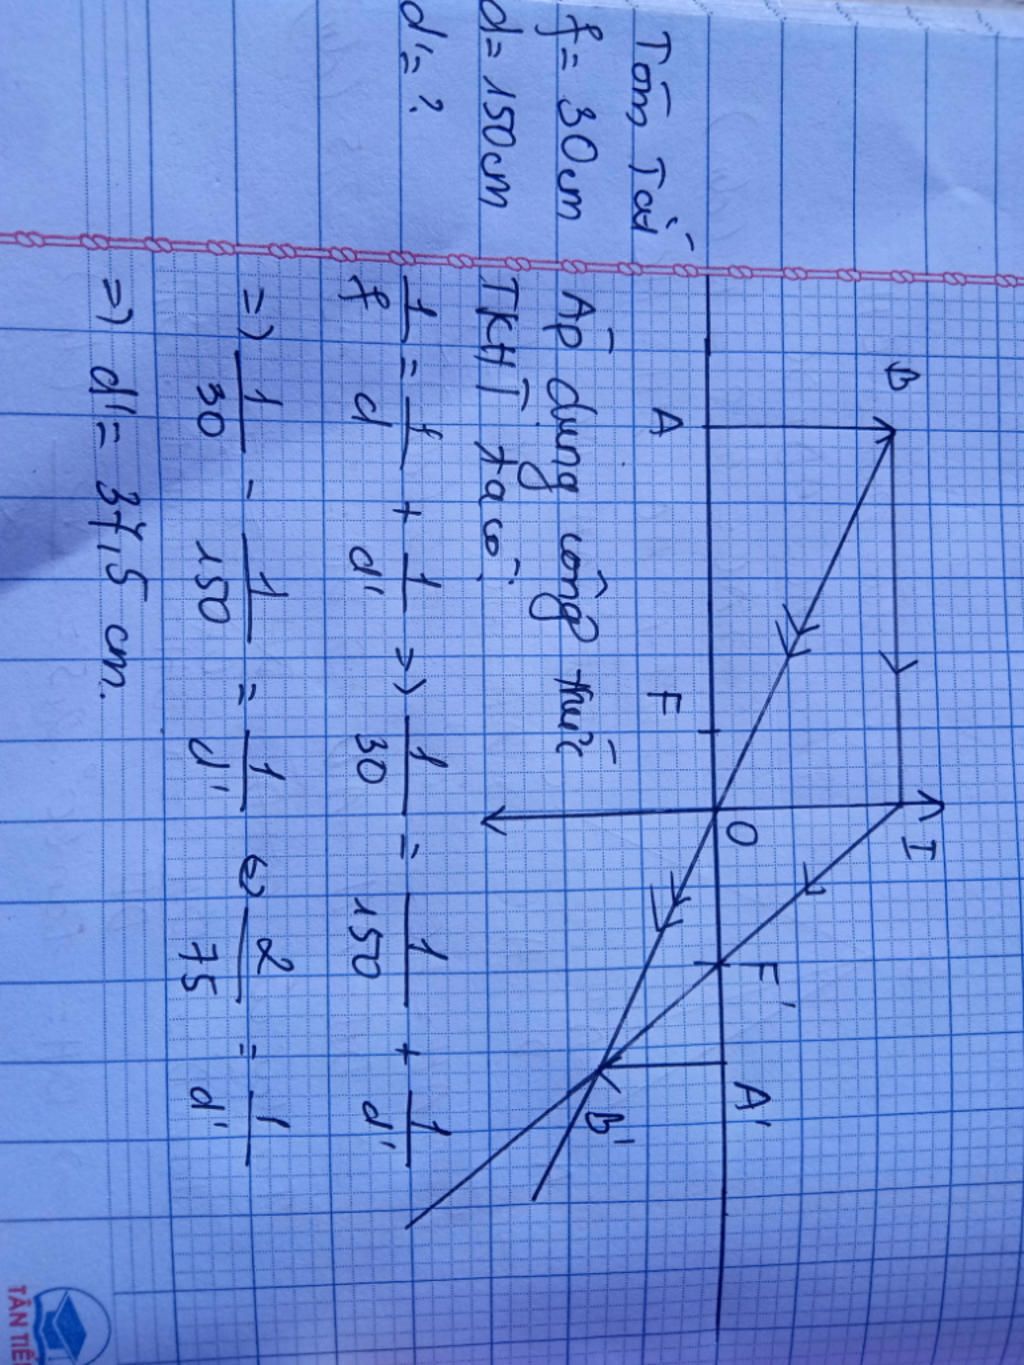 B
I
A
F
O
F'
A'
B'
Tóm Tắt
f = 30cm
d = 150cm
d' = ?
Áp dụng công thức
TKHT ta có:
1/f = 1/d + 1/d' => 1/30 = 1/150 + 1/d'
=> 1/30 - 1/150 = 1/d' <=> 2/75 = 1/d'
=> d' = 37,5 cm.